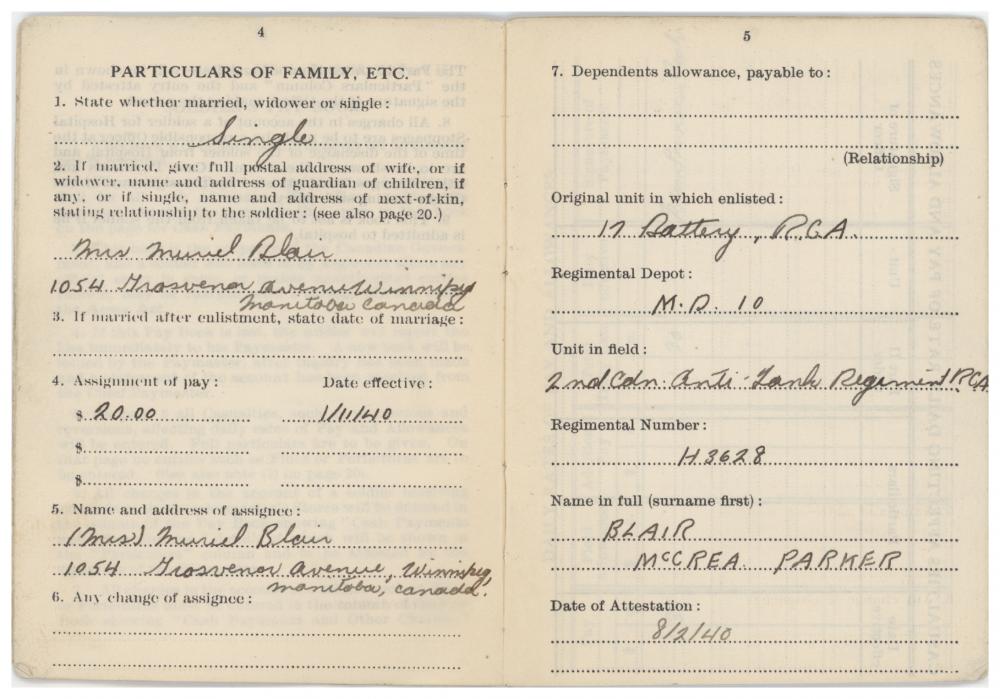 4
PARTICULARS OF FAMILY, ETC.
1. State whether married, widower or single:
Single
2. If married, give full postal address of wife, or if
widower, name and address of guardian of children, if
any, or if single, name and address of next-of-kin,
stating relationship to the soldier: (see also page 20.)
Mrs Muriel Blair
1054 Grosvenor Avenue Winnipeg
Manitoba Canada
3. If married after enlistment, state date of marriage:
4. Assignment of pay: Date effective:
$ 20.00 1/11/40
$
$
5. Name and address of assignee:
(Mrs) Muriel Blair
1054 Grosvenor Avenue, Winnipeg,
Manitoba, Canada.
6. Any change of assignee:
5
7. Dependents allowance, payable to:
(Relationship)
Original unit in which enlisted:
17 Battery, R.C.A.
Regimental Depot:
M.D. 10
Unit in field:
2nd Cdn. Anti-Tank Regiment RCA
Regimental Number:
H3628
Name in full (surname first):
BLAIR
McCREA PARKER
Date of Attestation:
8/2/40